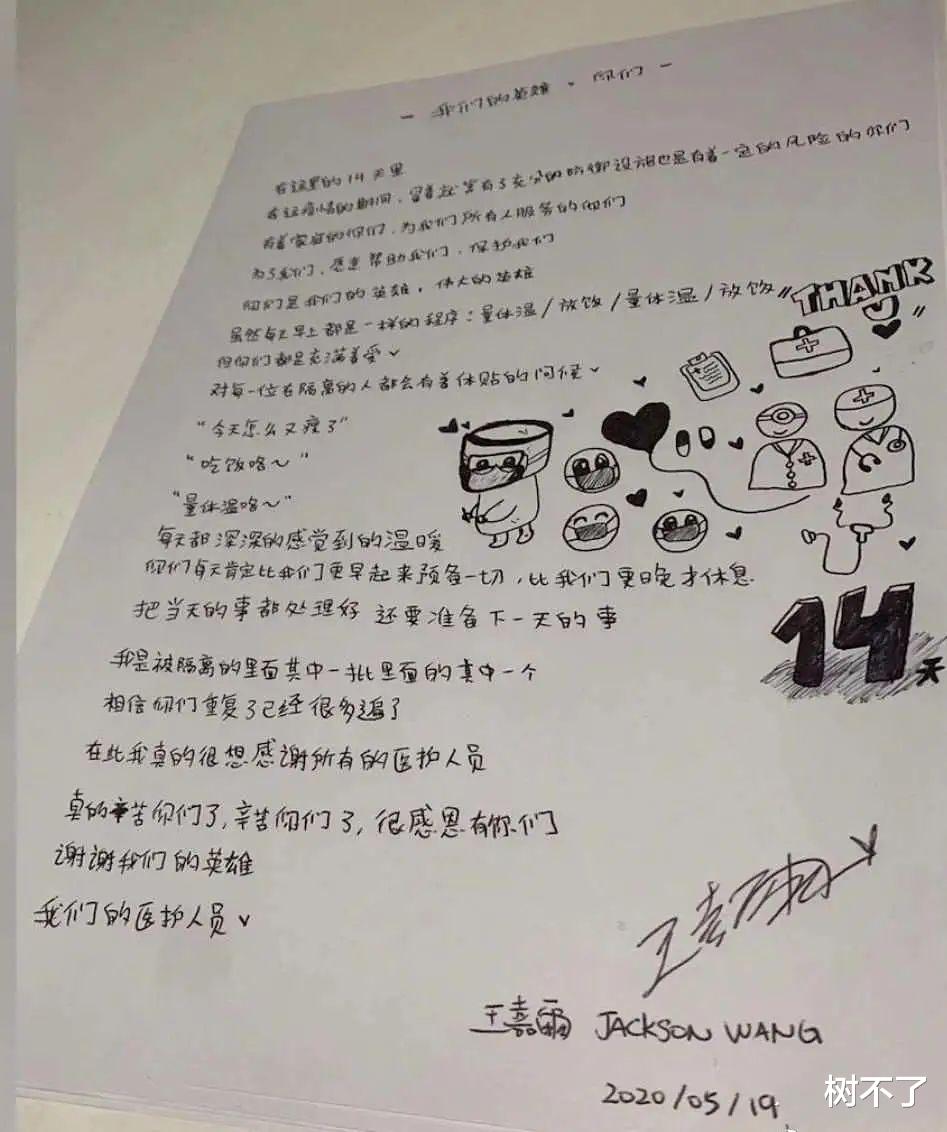 — 我们的英雄、你们 —
在这里的14天里
在这疫情的期间，冒着就算有了充分的防御设施也是有着一定的风险的你们
有着家庭的你们，为我们所有人服务的你们
为了我们，愿意帮助我们，保护我们
你们是我们的英雄，伟大的英雄
虽然每天早上都是一样的程序：量体温/放饭/量体温/放饭
但你们都是充满着爱
对每一位在隔离的人都会有着体贴的问候
"THANK U"
“今天怎么又瘦了”
“吃饭咯～”
“量体温咯～”
每天都深深的感觉到的温暖
你们每天肯定比我们更早起来预备一切，比我们更晚才休息
把当天的事都处理好 还要准备下一天的事
14天
我是被隔离的里面其中一批里面的其中一个
相信你们重复了已经很多遍了
在此我真的很想感谢所有的医护人员
真的辛苦你们了，辛苦你们了，很感恩有你们
谢谢我们的英雄
我们的医护人员
王嘉尔
王嘉爾 JACKSON WANG
2020/05/19
树不了